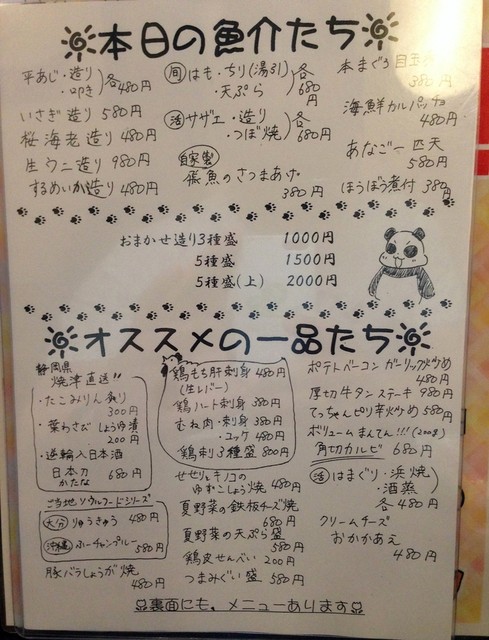 本日の魚介たち
平あじ・造り
・叩き 各480円
いさぎ造り 580円
桜海老造り 480円
生ウニ造り 980円
するめいか造り 480円
旬 はも・ちり(湯引)
・天ぷら 各680円
活 サザエ・造り
・つぼ焼 各680円
自家製
魚のさつまあげ
380円
本まぐろ目玉
380円
海鮮カルパッチョ
480円
あなご一匹天
580円
ほうぼう煮付 380円
おまかせ造り3種盛 1000円
5種盛 1500円
5種盛(上) 2000円
オススメの一品たち
静岡県
焼津直送!!
・たこみりん炙り
300円
・葉わさびしょうゆ漬
200円
・逆輸入日本酒
日本刀 680円
かたな
ご当地ソウルフードシリーズ
大分 りゅうきゅう 480円
沖縄 ふーチャンプルー
580円
豚バラしょうが焼
480円
鶏もも肝刺身 480円
(生レバー)
鶏ハート刺身 380円
むね肉・刺身 380円
・ユッケ 480円
鶏刺3種盛 800円
せせりとキノコの
ゆずこしょう焼 480円
夏野菜の鉄板チーズ焼
680円
夏野菜の天ぷら盛
580円
鶏皮せんべい 200円
つまみぐい盛 580円
ポテトベーコンガーリック炒め
480円
厚切牛タンステーキ 980円
てっちゃんピリ辛炒め 580円
ボリュームまんてん!!!(200g)
角切カルビ 680円
活 はまぐり・浜焼
・酒蒸
各480円
クリームチーズ
おかかあえ
480円
裏面にも、メニューあります